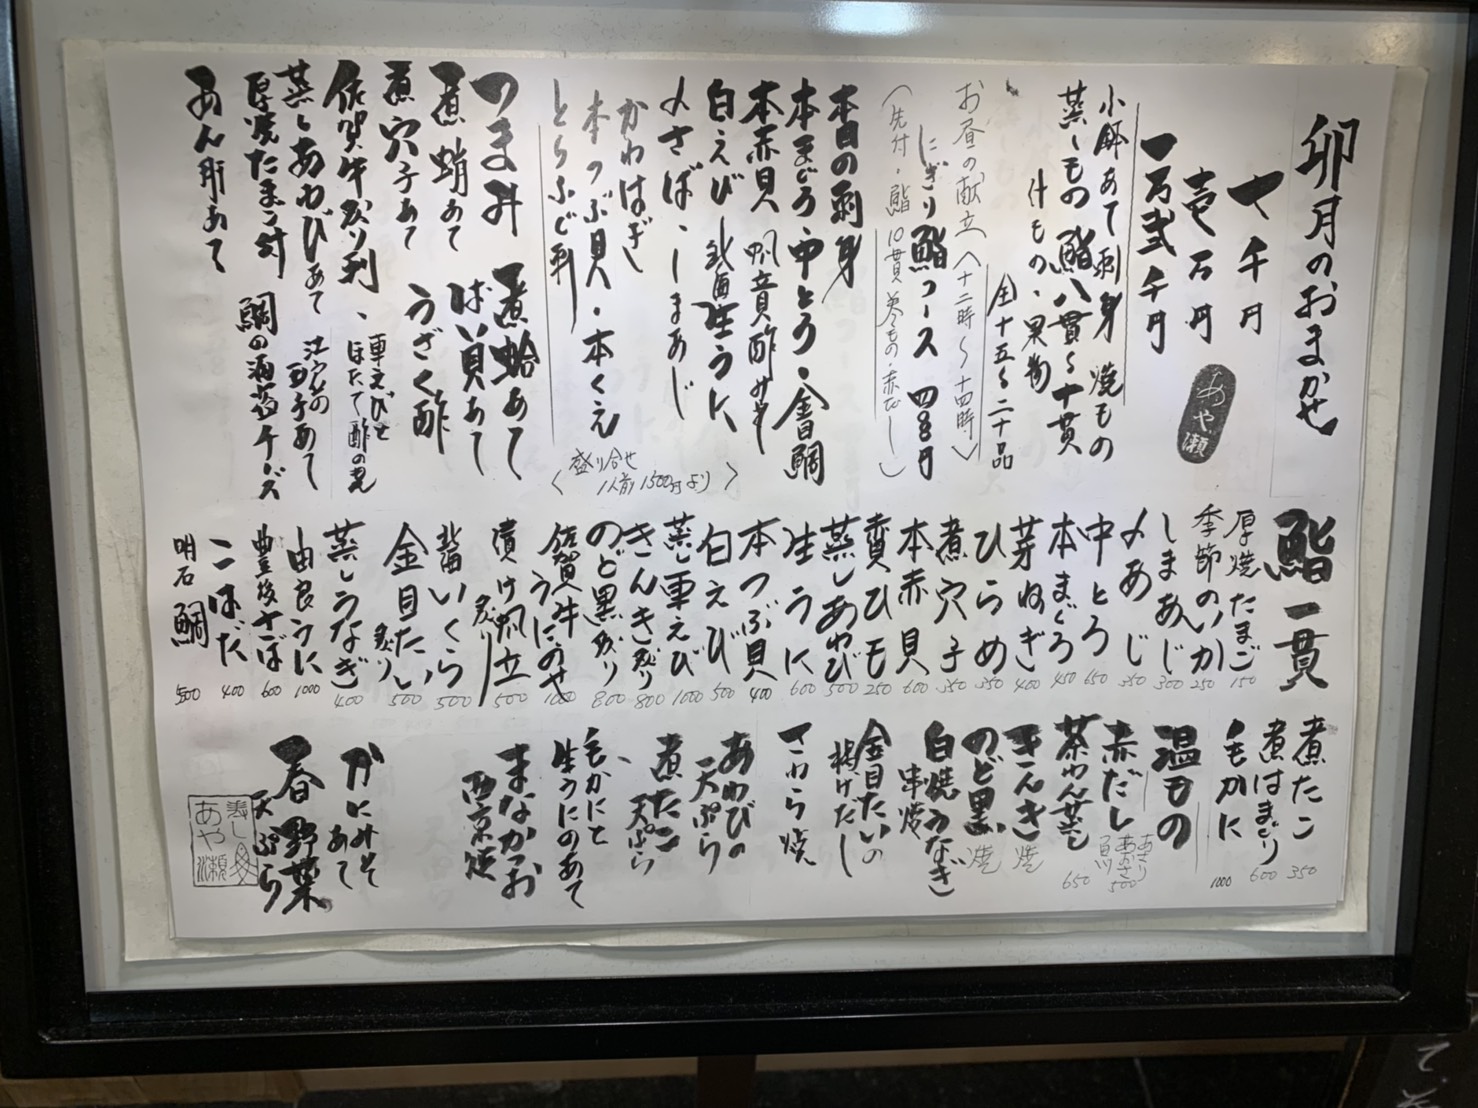 卯月のおまかせ
七千円
壱万円
一万弐千円
あや瀬
小鉢 あて 刺身 焼もの
蒸しもの 鮨八貫〜十貫
汁もの、果物
全十五〜二十品
お昼の献立(十二時〜十四時)
にぎり鮨コース 四千円
(先付・鮨10貫 巻もの・赤だし)
本日の刺身
本まぐろ・中とろ・金目鯛
本赤貝 帆立貝酢みそ
白えび 北海生うに
〆さば・しまあじ
かわはぎ
本つぶ貝・本くえ
とらふぐ刺
盛り合せ
1人前1500円より
つまみ 煮蛤あて
煮蛸あて ばい貝あて
煮穴子あて うざく酢
佐賀牛炙り刺、車えびと
ほたて酢の物
蒸しあわびあて 江戸前の
玉子あて
厚焼たまご 鯛の酒盗チーズ
あん肝あて
鮨一貫
厚焼たまご 150
季節のいか 250
しまあじ 300
〆あじ 350
中とろ 650
本まぐろ 450
芽ねぎ 400
ひらめ 350
煮穴子 350
本赤貝 600
赤貝ひも 250
蒸しあわび 500
生うに 600
本つぶ貝 400
白えび 500
蒸し車えび 1000
きんき炙り 800
のど黒炙り 800
佐賀牛
うにのせ 1000
漬け帆立
炙り 500
北海いくら 500
金目たい
炙り 500
蒸しうなぎ 400
由良うに 1000
豊後さば 600
こはだ 400
明石鯛 500
煮たこ 350
煮はまぐり 600
毛かに 1000
温もの
赤だし あさり 500
茶わん蒸し 650
きんき焼
のど黒焼
白焼うなぎ
串焼
金目たいの
揚げだし
さわら焼
あわびの
天ぷら
煮たこ
天ぷら
毛かにと
生うにのあて
まなかつお
西京焼
かにみそ
あて
春野菜
天ぷら
寿し
あや瀬